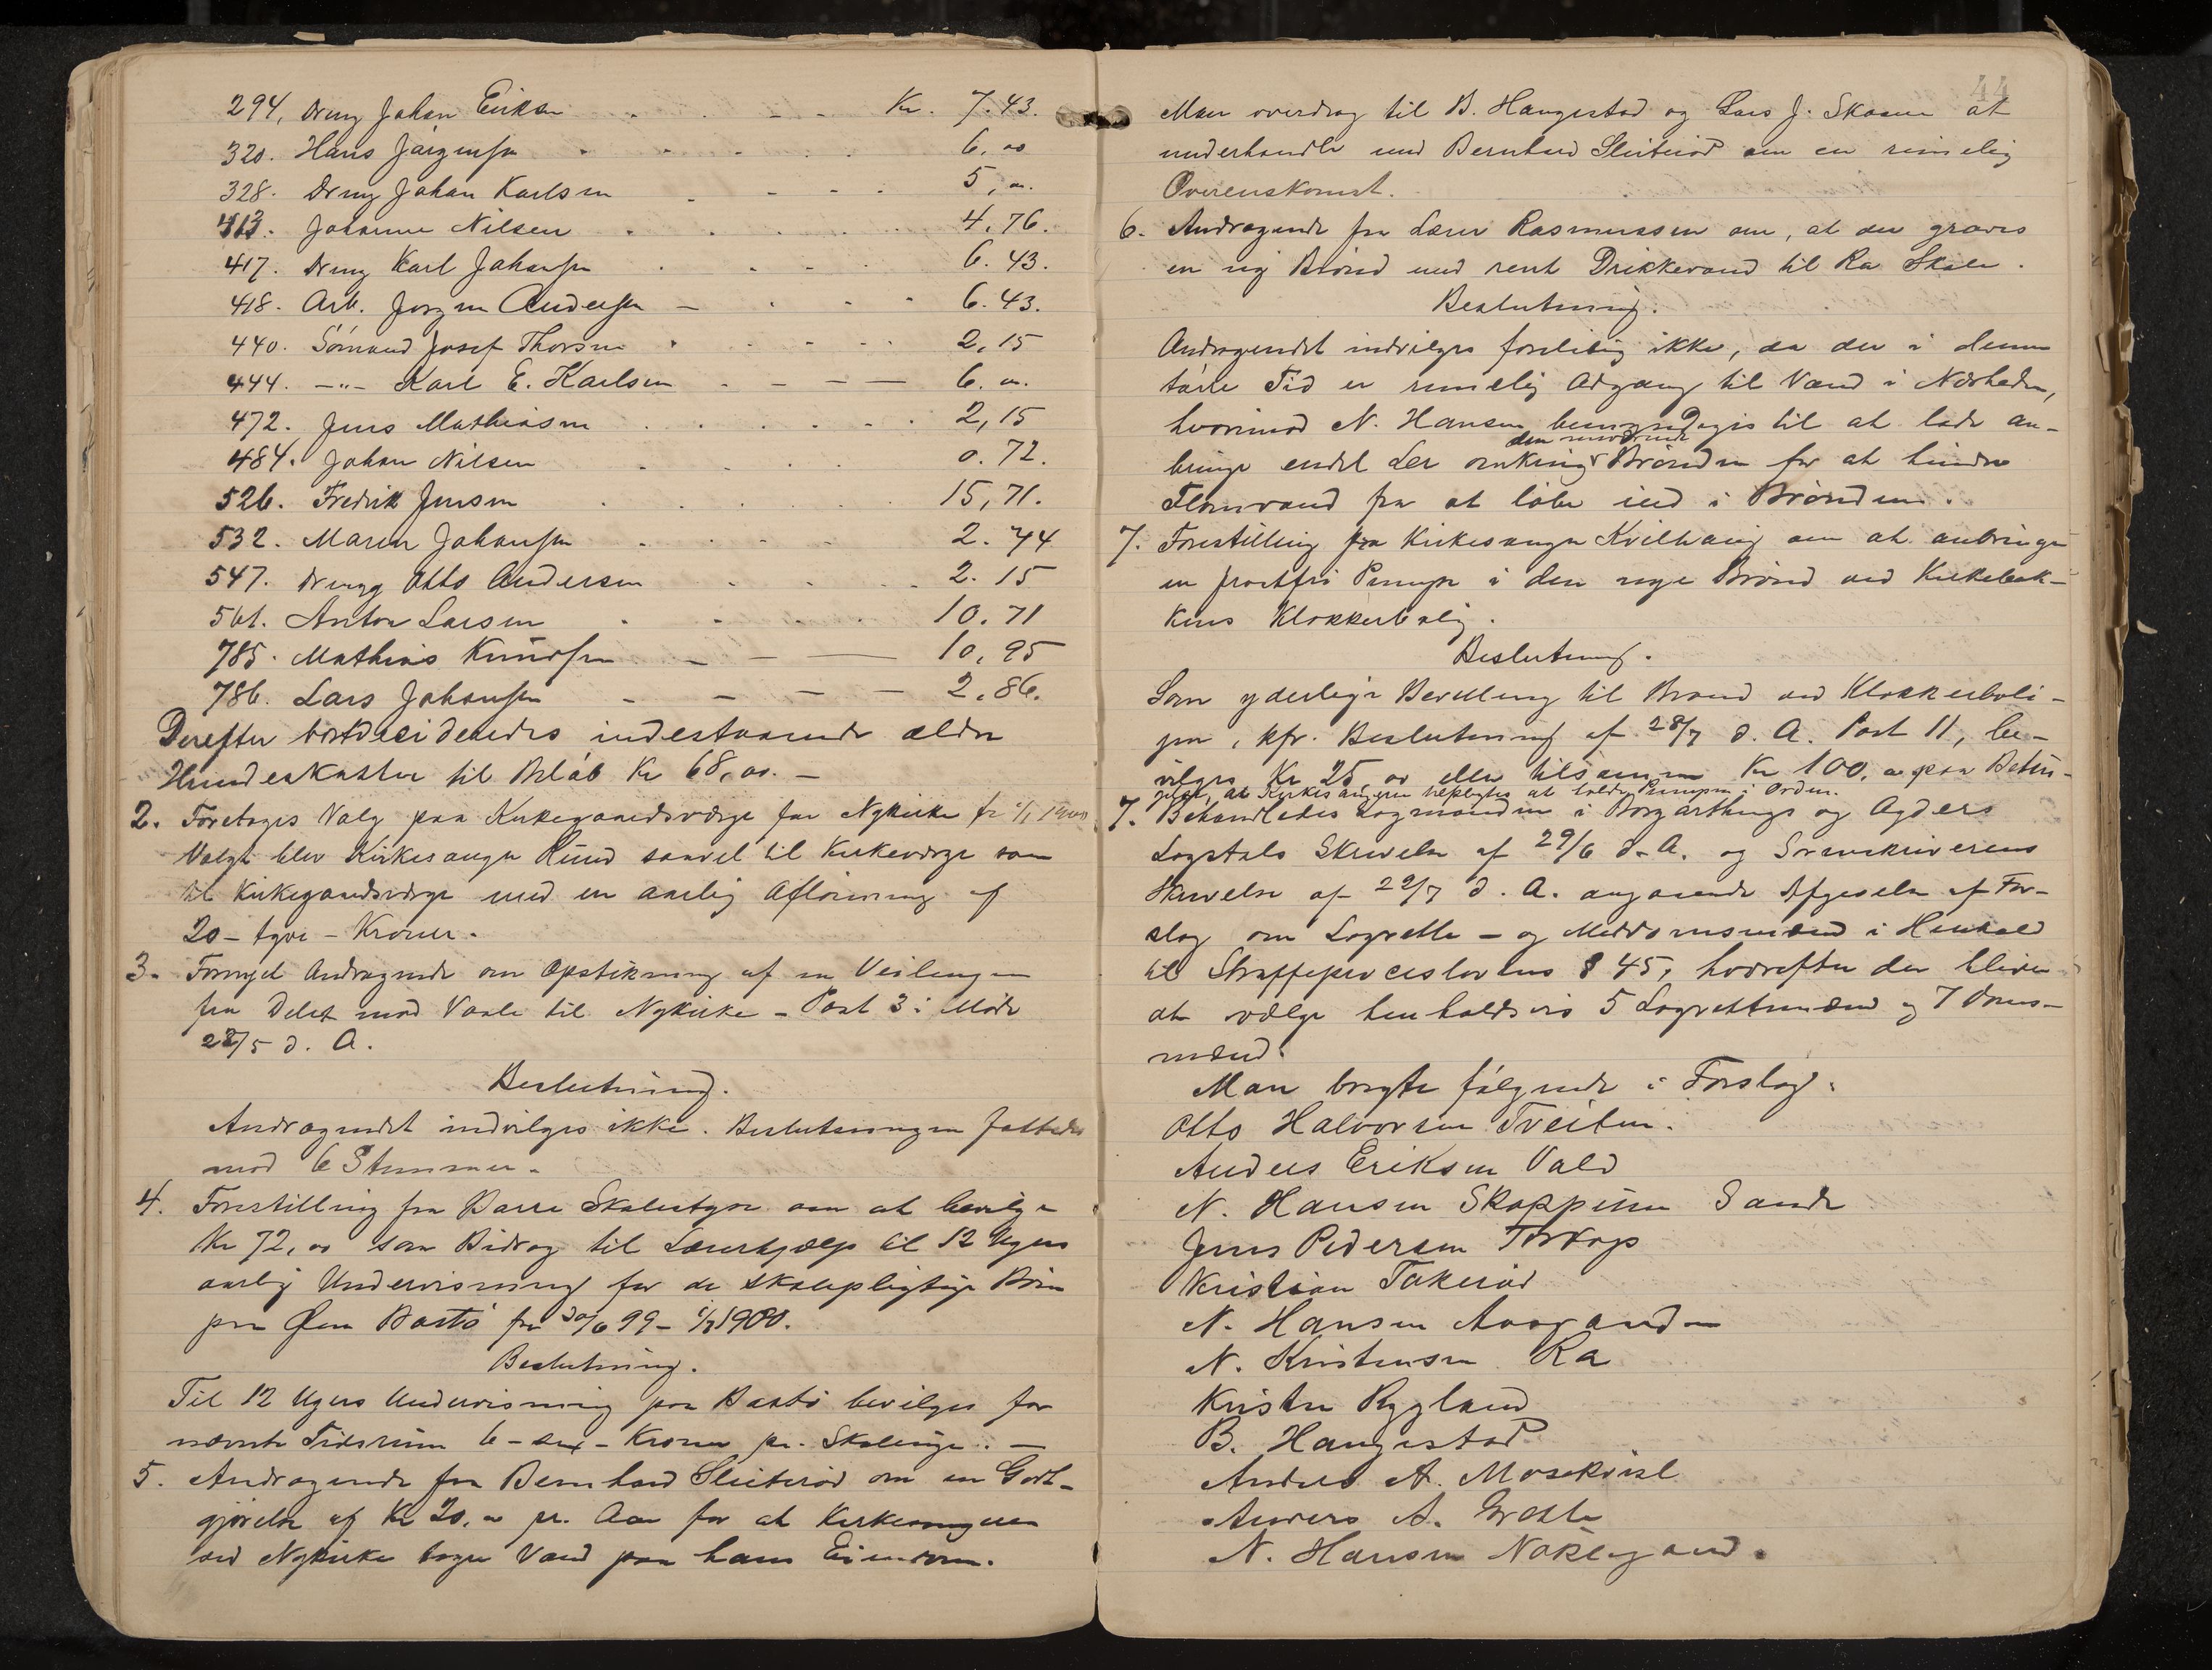 294, Dreng Johan Eriksen Kr. 7.43.
320. Hans Jörgensen 6,00
328. Dreng Johan Karlsen 5,00.
413. Johanne Nilsen 4,76.
417. Dreng Karl Johansen 6.43.
418. Arb. Jörgen Andersen 6.43.
440. Sömand Josef Thorsen 2,15
444. -"- Karl E. Karlsen 6.00.
472. Jens Mathiasen 2,15
484. Johan Nilsen 0.72.
526. Fredrik Jensen 15,71.
532. Maren Johansen 2.44
547. Dreng Otto Andersen 2.15
561. Anton Larsen 10.71
785. Mathias Knudsen 10,95
786. Lars Johansen 2.86.
Derefter indestaaende ældre
Hundeskatter til Beløb Kr 68,00. —
2. Foretoges Valg paa Kirkegaardsværge for Nykirke fr 1/1 1900
Valgt blev Kirkesanger Ruud saavel til Kirkeværge som
til Kirkegaardsværge med en aarlig Aflönning af
20 - tyve - Kroner.
3. Fornyet Andragende om Opstikning af en Veilinje
fra Delet mod Vaale til Nykirke - Post 3 i Möde
28/5 d. A.
Beslutning.
Andragendet indvilges ikke. Beslutningen fattedes
mod 6 Stemmer.
4. Forestilling fra Borre Skolestyre om at bevilge
Kr 72,00 som Bidrag til Lærerhjælp til 12 Ugers
aarlig Undervisning for de skolepligtige Börn
paa Öen Bastö fra 30/6 99 - 1/7 1900.
Beslutning.
Til 12 Ugers Undervisning paa Bastö bevilges for
nævnte Tidsrum 6 - sex - Kroner pr. Skoleuge. —
5. Andragende fra Bernhard Sletteröd om en Godt-
gjörelse af Kr 20,00 pr. Aar for at Kirkesangeren
ved Nykirke tager Vand paa hans Eiendom.
44
Man overdrog til B. Haugestad og Lars J. Skaane at
underhandle med Bernhard Sletteröd om en rimelig
Overenskomst.
6. Andragende fra Lærer Rasmussen om, at der graves
en ny Brönd med rent Drikkevand til Ra Skole.
Beslutning.
Andragendet indvilges foreløbig ikke, da der i denne
törre Tid er rimelig Adgang til Vand i Nærheden,
hvorimod N. Hansen bemyndiges til at lade an-
den nuværende
bringe endel Ler omkring Brönden for at hindre
Flomvand fra at löbe ind i Brönden.
7. Forestilling fra Kirkesanger Kvilhaug om at anbringe
en frostfri Pumpe i den nye Brönd ved Kirkebak-
kens Klokkerbolig.
Beslutning.
Som yderligere Bevilling til Brönd ved Klokkerboli-
gen, kfr. Beslutning af 28/7 d. A. Post 11, be-
vilges Kr 25,00 eller tilsammen Kr 100,00 paa Betin-
gelse, at Kirkesangeren tilpligtes at holde Pumpen i Orden.
7. Behandledes Lagmanden i Borgarthings og Agders
Lagstols Skrivelse af 29/6 d. A. og Sorenskriverens
Skrivelse af 29/7 d. A. angaaende Afgivelse af For-
slag om Lagrette - og Meddomsmænd i Henhold
til Straffeproceslovens § 45, hvorefter der bliver
at vælge henholdsvis 5 Lagrettemænd og 7 Doms-
mænd.
Man bragte fölgende i Forslag:
Otto Halvorsen Tveiten.
Anders Eriksen Vold
N. Hansen Skoppum Sande
Jens Pedersen Torkop
Kristian Takeröd
N. Hansen
N. Kristensen Ra
Krister Rygland
B. Haugestad
Anders A. Mosekvist
Anders A. Grette
N. Hansen Nöklegaard.